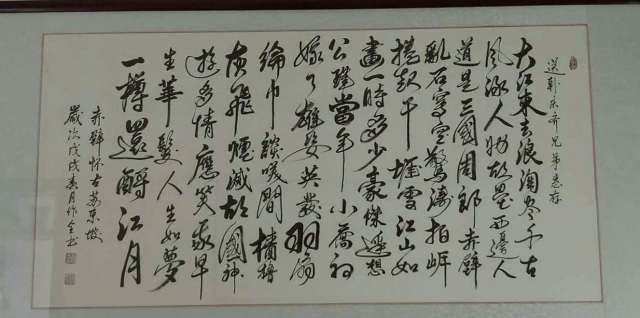 送兄弟惠存
大江東去浪淘尽千古
风流人物故垒西邊人
道是三國周郎赤壁
乱石穿空驚涛拍岸
捲起千堆雪江山如
畫一時多少豪傑遥想
公瑾當年小喬初
嫁了雄姿英發羽扇
綸巾談笑間檣櫓
灰飛煙滅故國神
遊多情應笑我早
生華髮人生如夢
一樽還酹江月
赤壁怀古苏东坡
歲次戊戌春月书